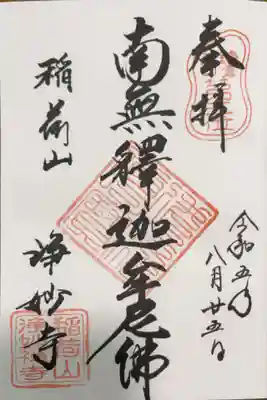 奉拝
令和五年
八月廿五日
南無釋迦牟尼佛
稲荷山
浄妙寺
稲荷山
浄妙禅寺